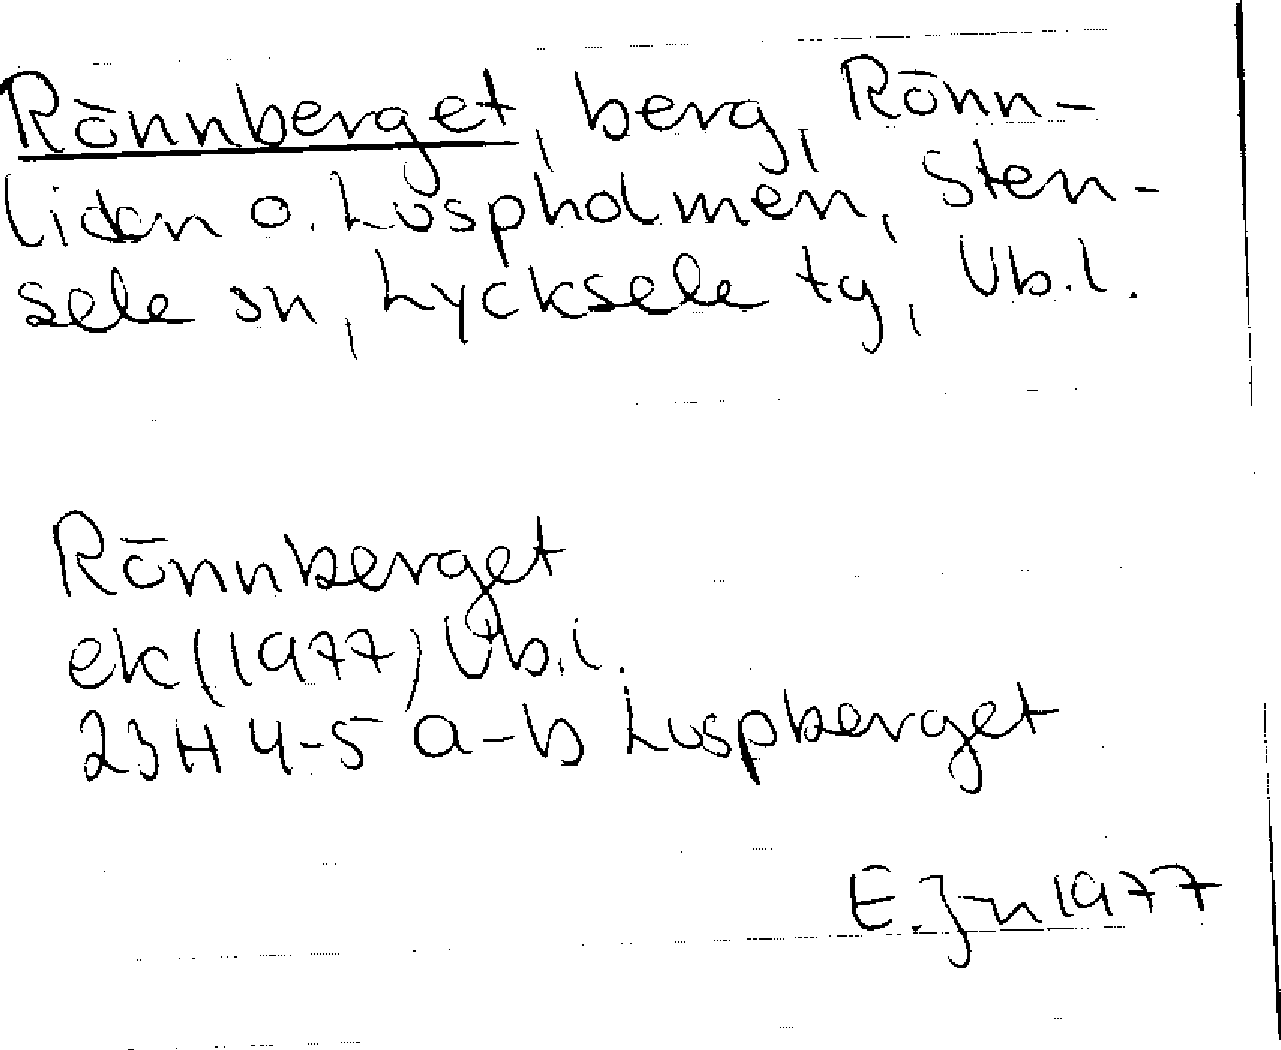 Rönnberget, berg, Rönn-
liden o. Luspholmen, Sten-
sele sn, Lycksele tg, Vb.l.
Rönnberget
ek (1977) Vb.l.
23H 4-5 a-b Luspberget
E.Jn 1977